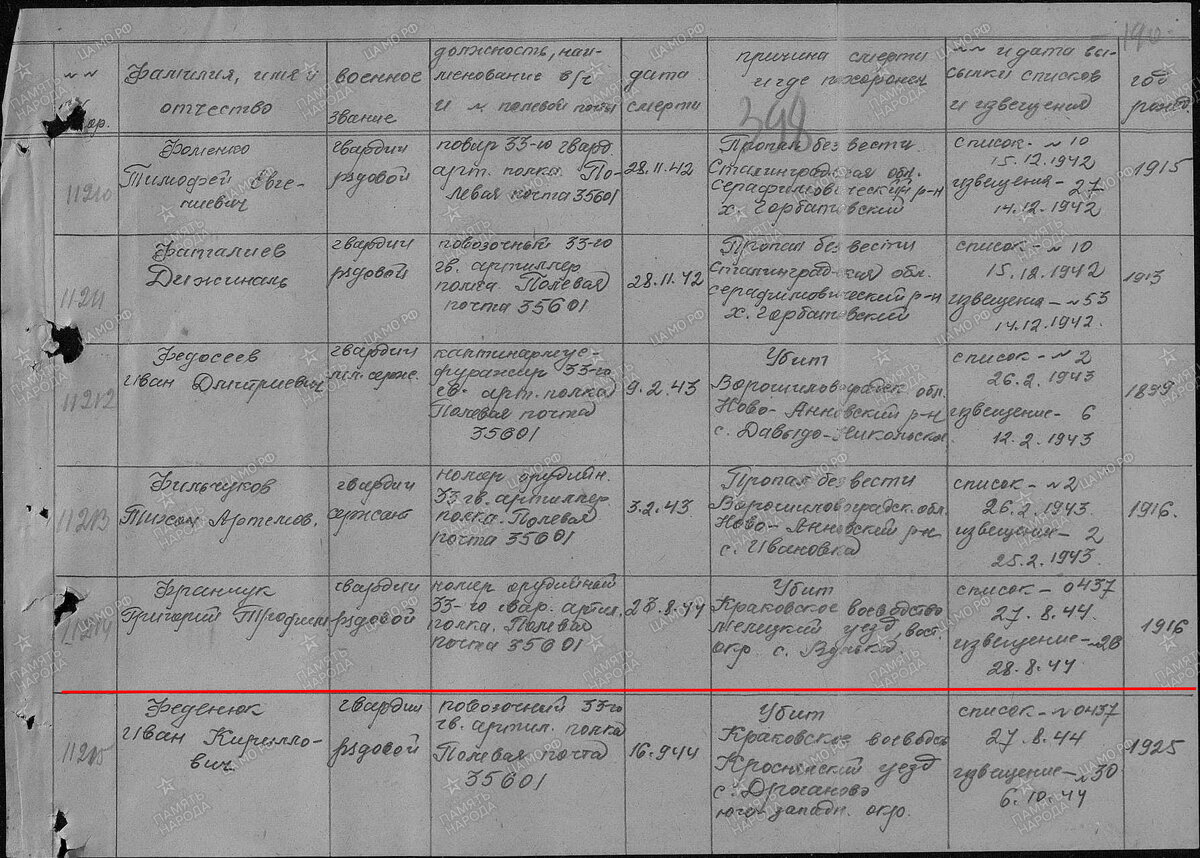 140.
№№
пор.
Фамилия, имя и
отчество
военное
звание
должность, наи-
менование в/ч
и № полевой почты
дата
смерти
причина смерти
и где похоронен
398
№№ и дата вы-
сылки списков
и извещения
год
рожд.
11210
Фоменко
Тимофей Евге-
ниевич
гвардии
рядовой
повар 33-го гвард.
арт. полка. По-
левая почта 35601
28.11.42
Пропал без вести
Сталинградская обл.
серафимовический р-н
х. Горбатовский
список - №10
15.12.1942
извещения - 27
14.12.1942
1915
11211
Фаталиев
Дижиналь
гвардии
рядовой
повозочный 33-го
гв. артиллер
полка Полевая
почта 35601
28.11.42
Пропал без вести
Сталинградская обл.
серафимовический р-н
х. Горбатовский
список - №10
15.12.1942
извещения - №53
14.12.1942.
1913
11212
Федосеев
Иван Дмитриевич
гвардии
мл. серж.
каптинармус-
фуражир 33-го
гв. арт. полка
Полевая почта
35601
9.2.43
Убит
Ворошиловоградск. обл.
Ново-Анновский р-н
с. Давыдо-Никольское
список - №2
26.2.1943
извещение - 6
12.2.1943
1899
11213
Фильчуков
Тихон Артемов.
гвардии
сержант
номер орудийн.
33 гв. артиллер.
полка. Полевая
почта 35601
3.2.43
Пропал без вести
Ворошиловоградск. обл.
Ново-Анновский р-н
с. Ивановка
список - №2
26.2.1943.
извещение - 2
25.2.1943.
1916.
11214
Франчук
Григорий Трофим
гвардии
рядовой
номер орудийной
33-го гвар. артил.
полка. Полевая
почта 35601
23.8.44
Убит
Краковское воеводство
Мелецкий уезд, вост.
окр. с. Вулька.
список - 0437
27.8.44
извещение - №28
28.8.44
1916
11215
Феденюк
Иван Кирилло-
вич
гвардии
рядовой
повозочный 33-го
гв. артил. полка
Полевая почта
35601
16.9.44
Убит
Краковское воеводс
Кросненский уезд
с. Дроганово
юго-западн. окр.
список - №0437
27.8.44
извещение - №30
6.10.44
1925
ПАМЯТЬ
НАРОДА
ЦАМО.РФ